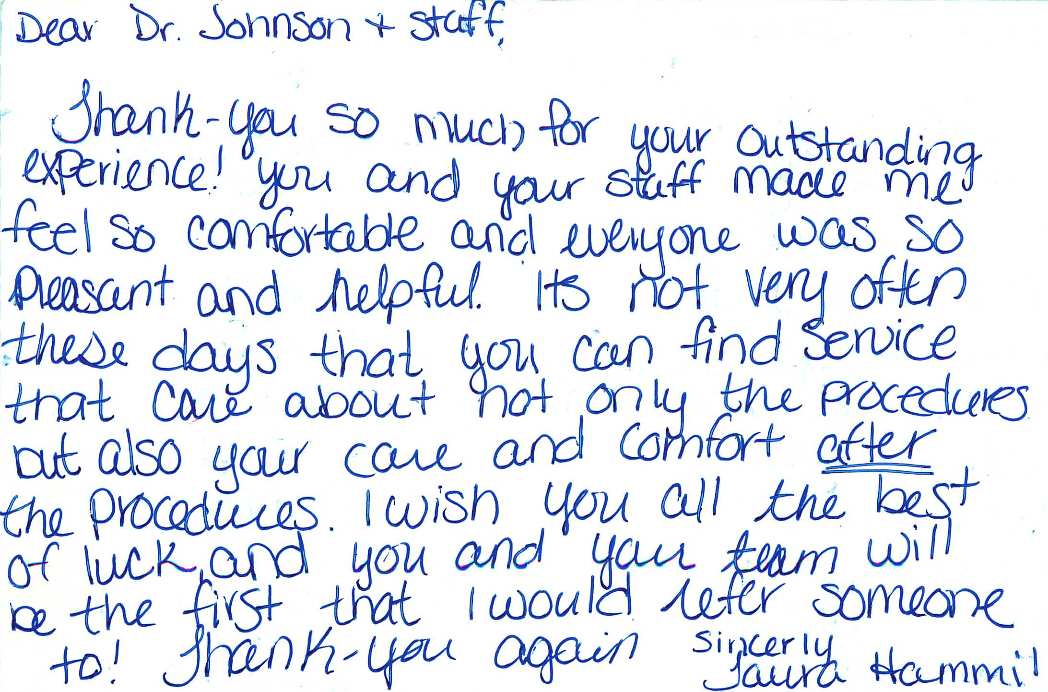 Dear Dr. Johnson + Staff,
Thank-you so much for your outstanding
experience! you and your staff made me
feel so comfortable and everyone was so
pleasant and helpful. Its not very often
these days that you can find service
that care about not only the procedures
but also your care and comfort after
the procedures. I wish you all the best
of luck, and you and your team will
be the first that I would refer someone
to! Thank-you again Sincerly
Laura Hammil